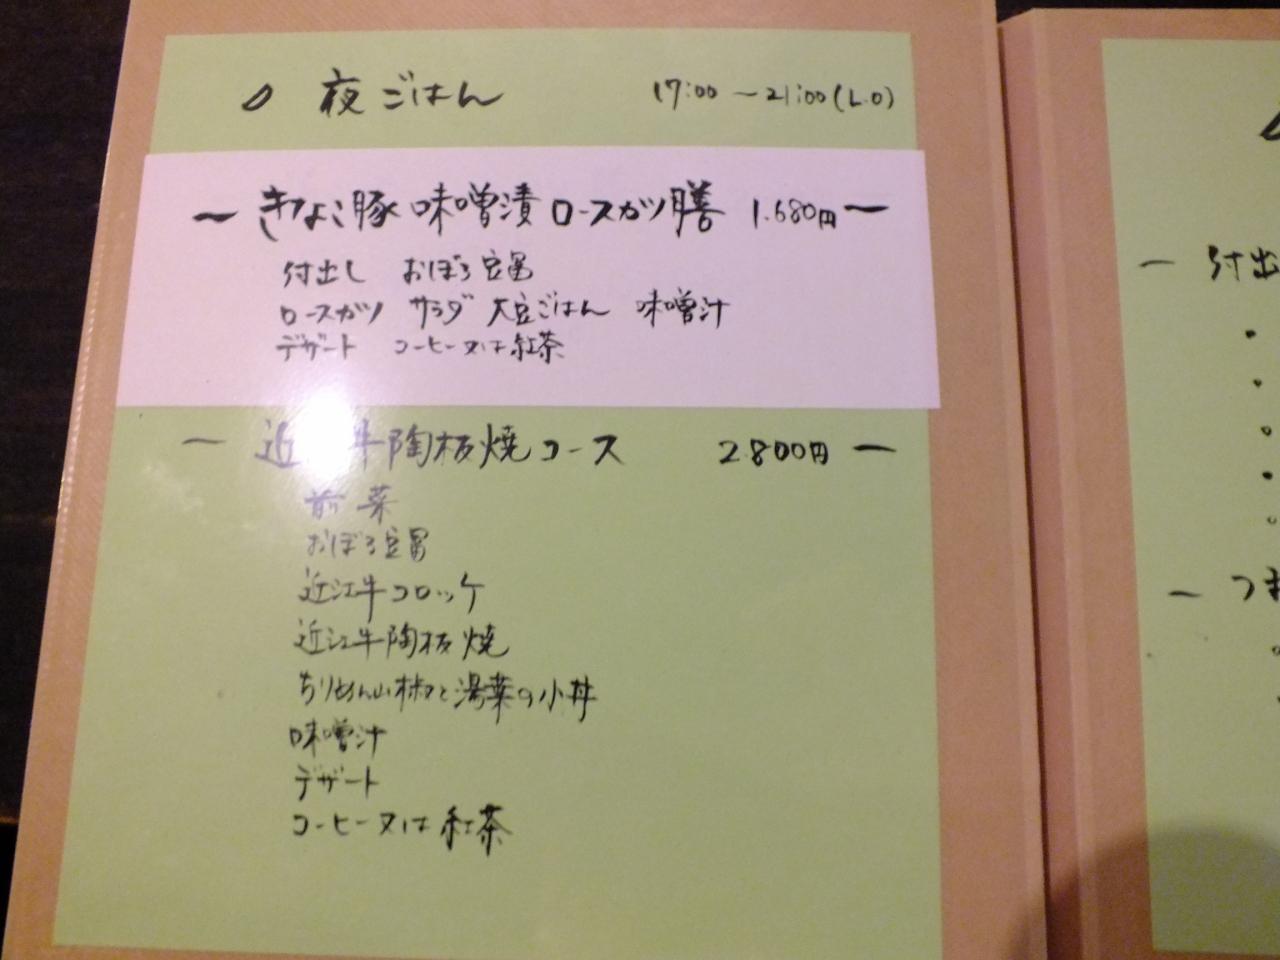 夜ごはん 17:00 〜21:00(L.O)
〜 きよこ豚 味噌漬 ロースカツ膳 1.680円 ー
付出し おぼろ豆冨
ロースカツ サラダ 大豆ごはん 味噌汁
デザート コーヒー又は紅茶
ー 近江牛陶板焼コース 2.800円 ー
前菜
おぼろ豆冨
近江牛コロッケ
近江牛陶板焼
ちりめん山椒と湯葉の小丼
味噌汁
デザート
コーヒー又は紅茶
ー 付出
ー つま